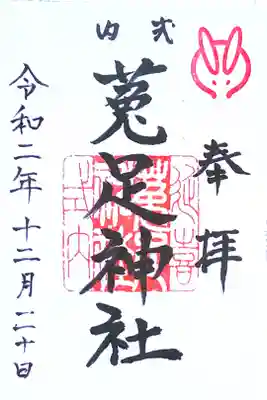 奉拝
式内
菟足神社
令和二年十二月二十日